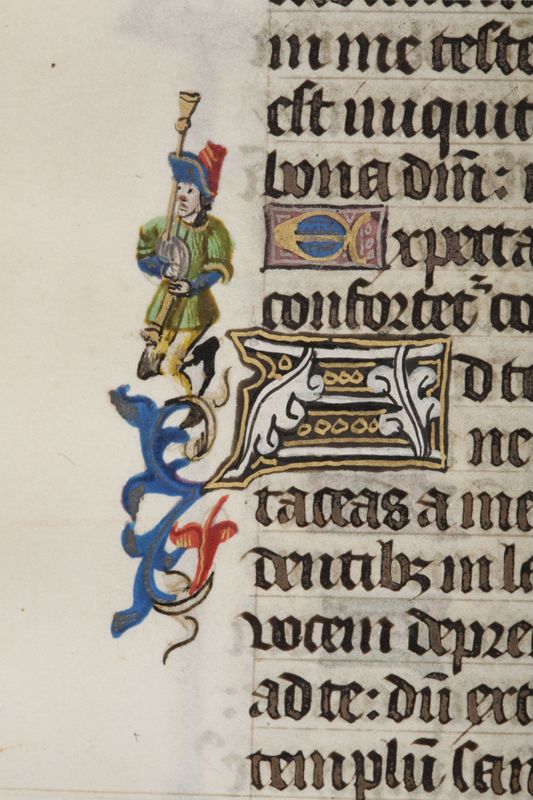 in me teste
est iniquit
bona dm̄: i
Expecta
confortet̄ co
Ad te
ne
taceas a me
dentibꝫ in la
vocem depre
ad te: dū ext
templū san